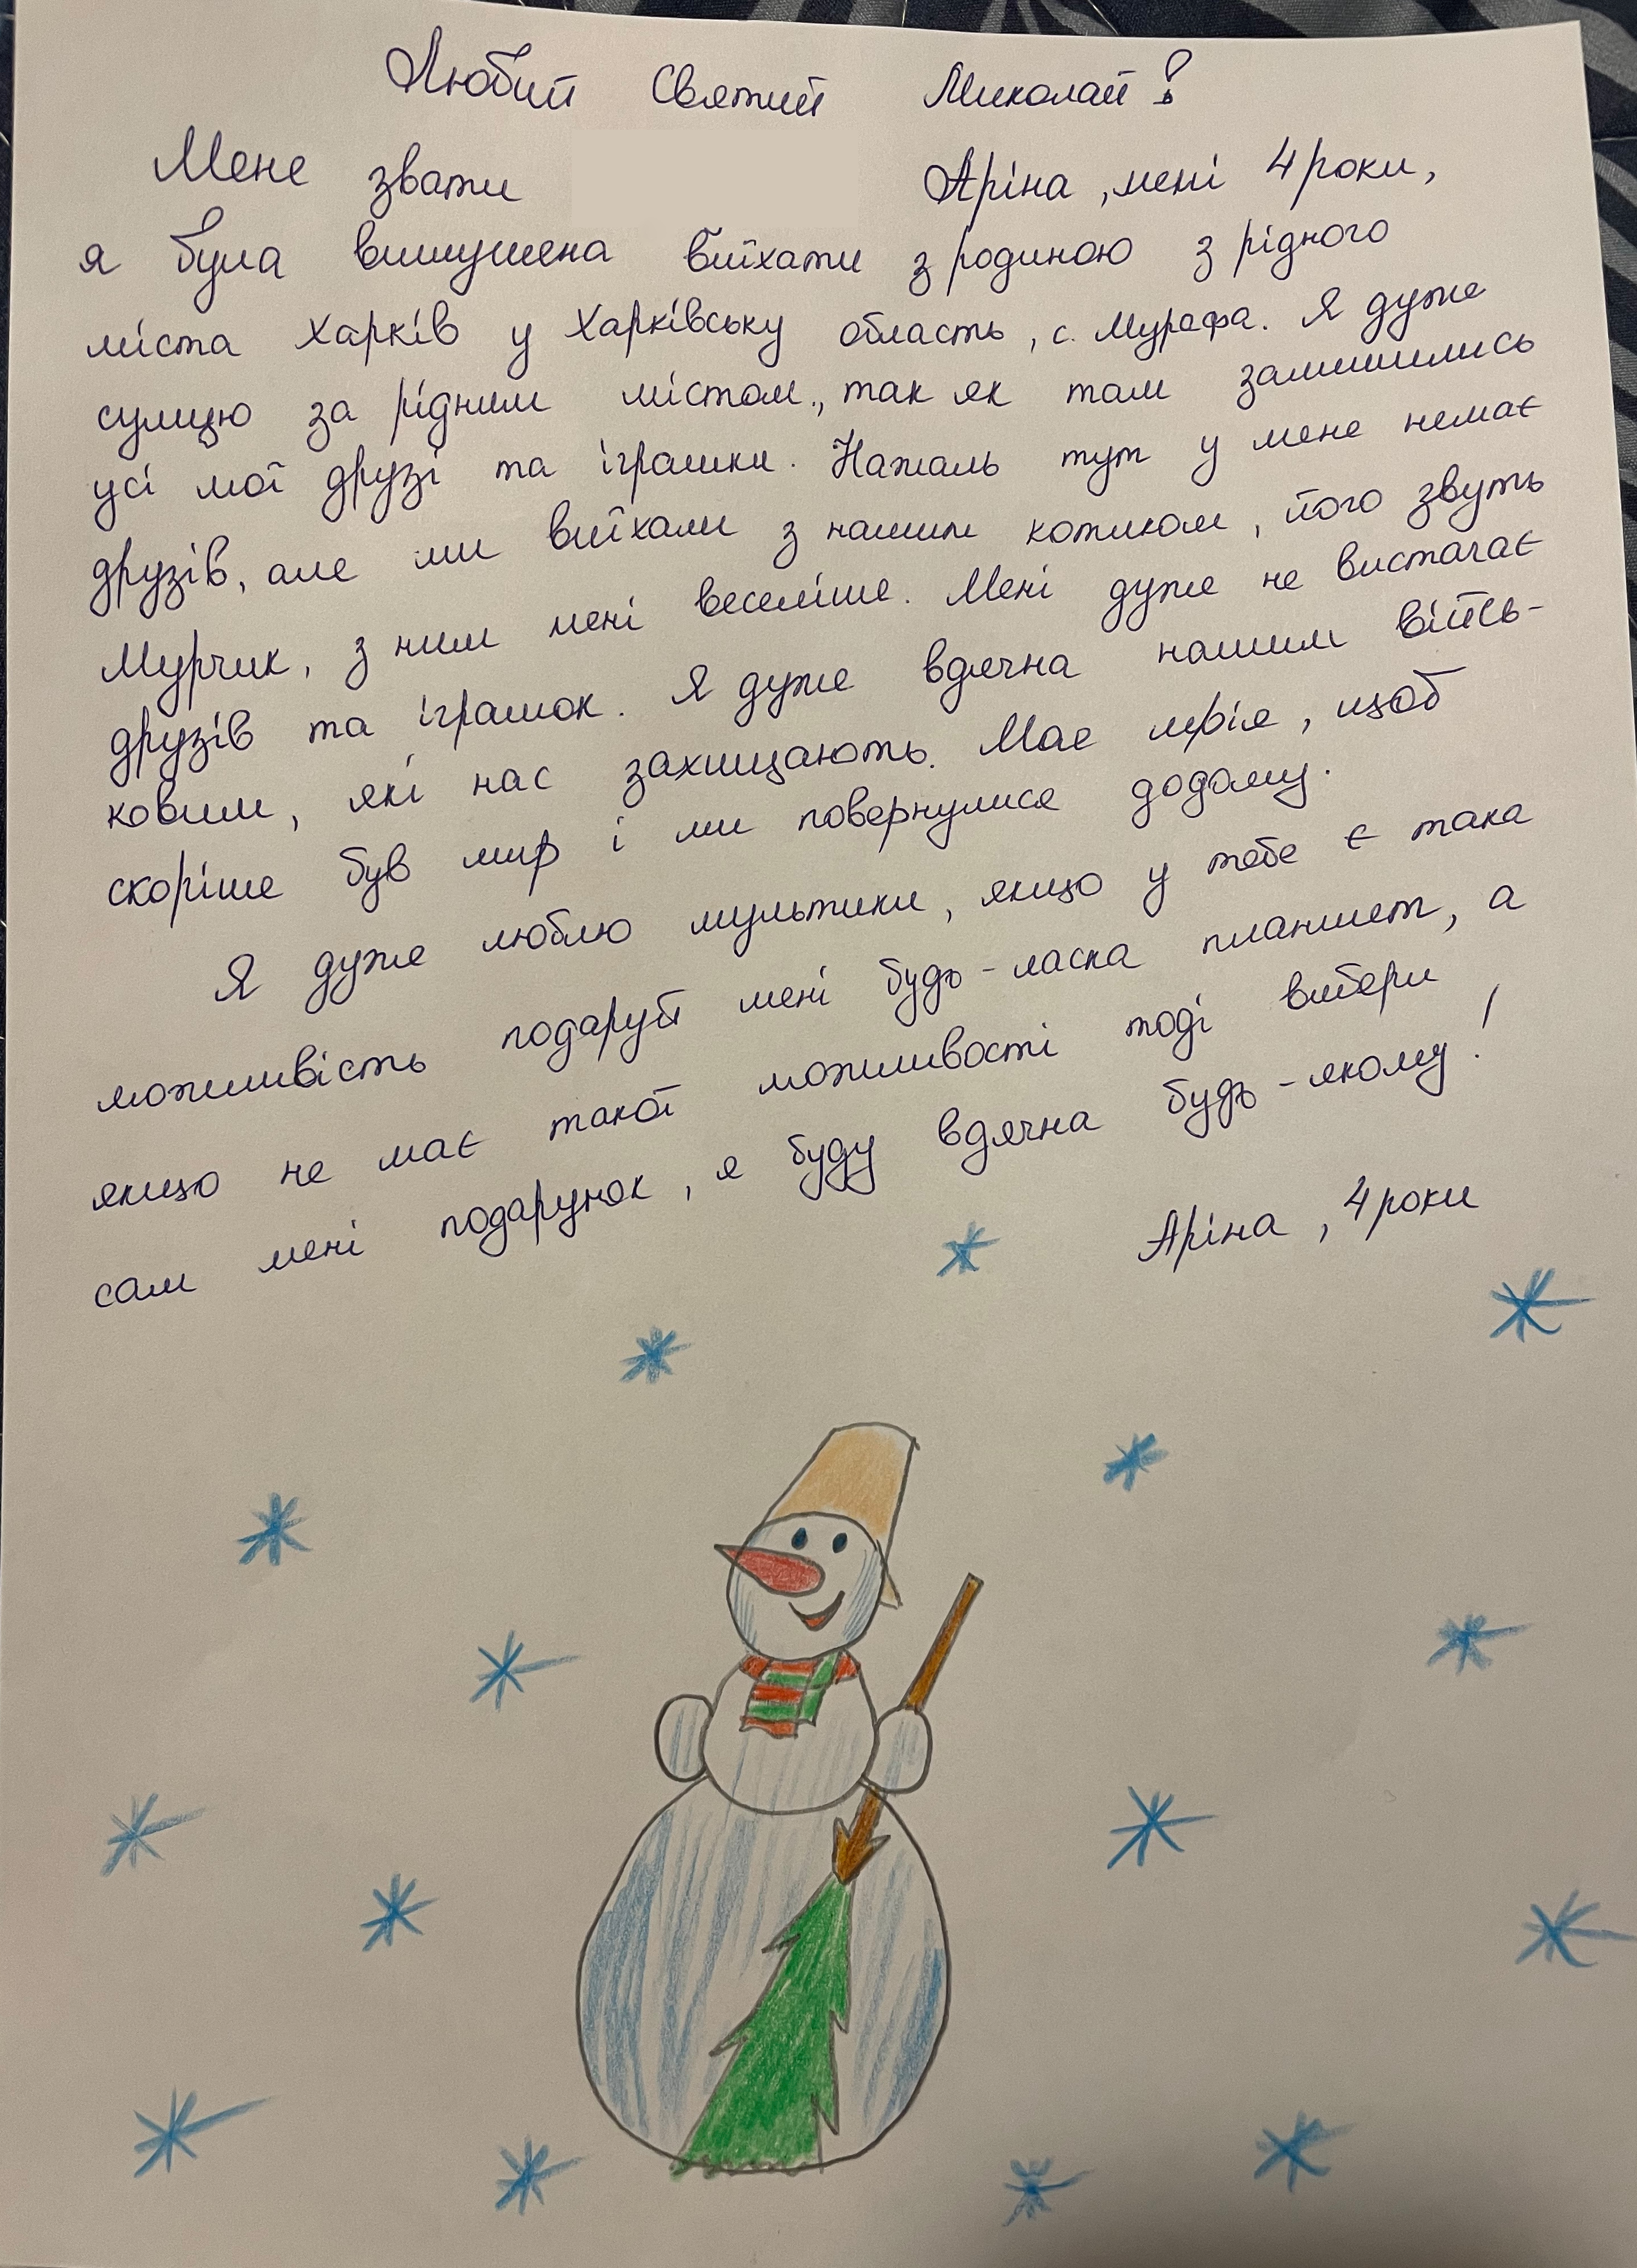 Любий Святий Миколай!
Мене звати Аріна, мені 4 роки,
я була вимушена виїхати з родиною з рідного
міста Харків у Харківську область, с. Мурафа. Я дуже
сумую за рідним містом, так як там залишились
усі мої друзі та іграшки. Нажаль тут у мене немає
друзів, але ми виїхали з нашим котиком, його звуть
Мурчик, з ним мені веселіше. Мені дуже не вистачає
друзів та іграшок. Я дуже вдячна нашим війсь-
ковим, які нас захищають. Моє мрія, щоб
скоріше був мир і ми повернулися додому.
Я дуже люблю мультики, якщо у тебе є така
можливість подаруй мені будь-ласка планшет, а
якщо не має такої можливості тоді вибери
сам мені подарунок, я буду вдячна будь-якому!
Аріна, 4 роки